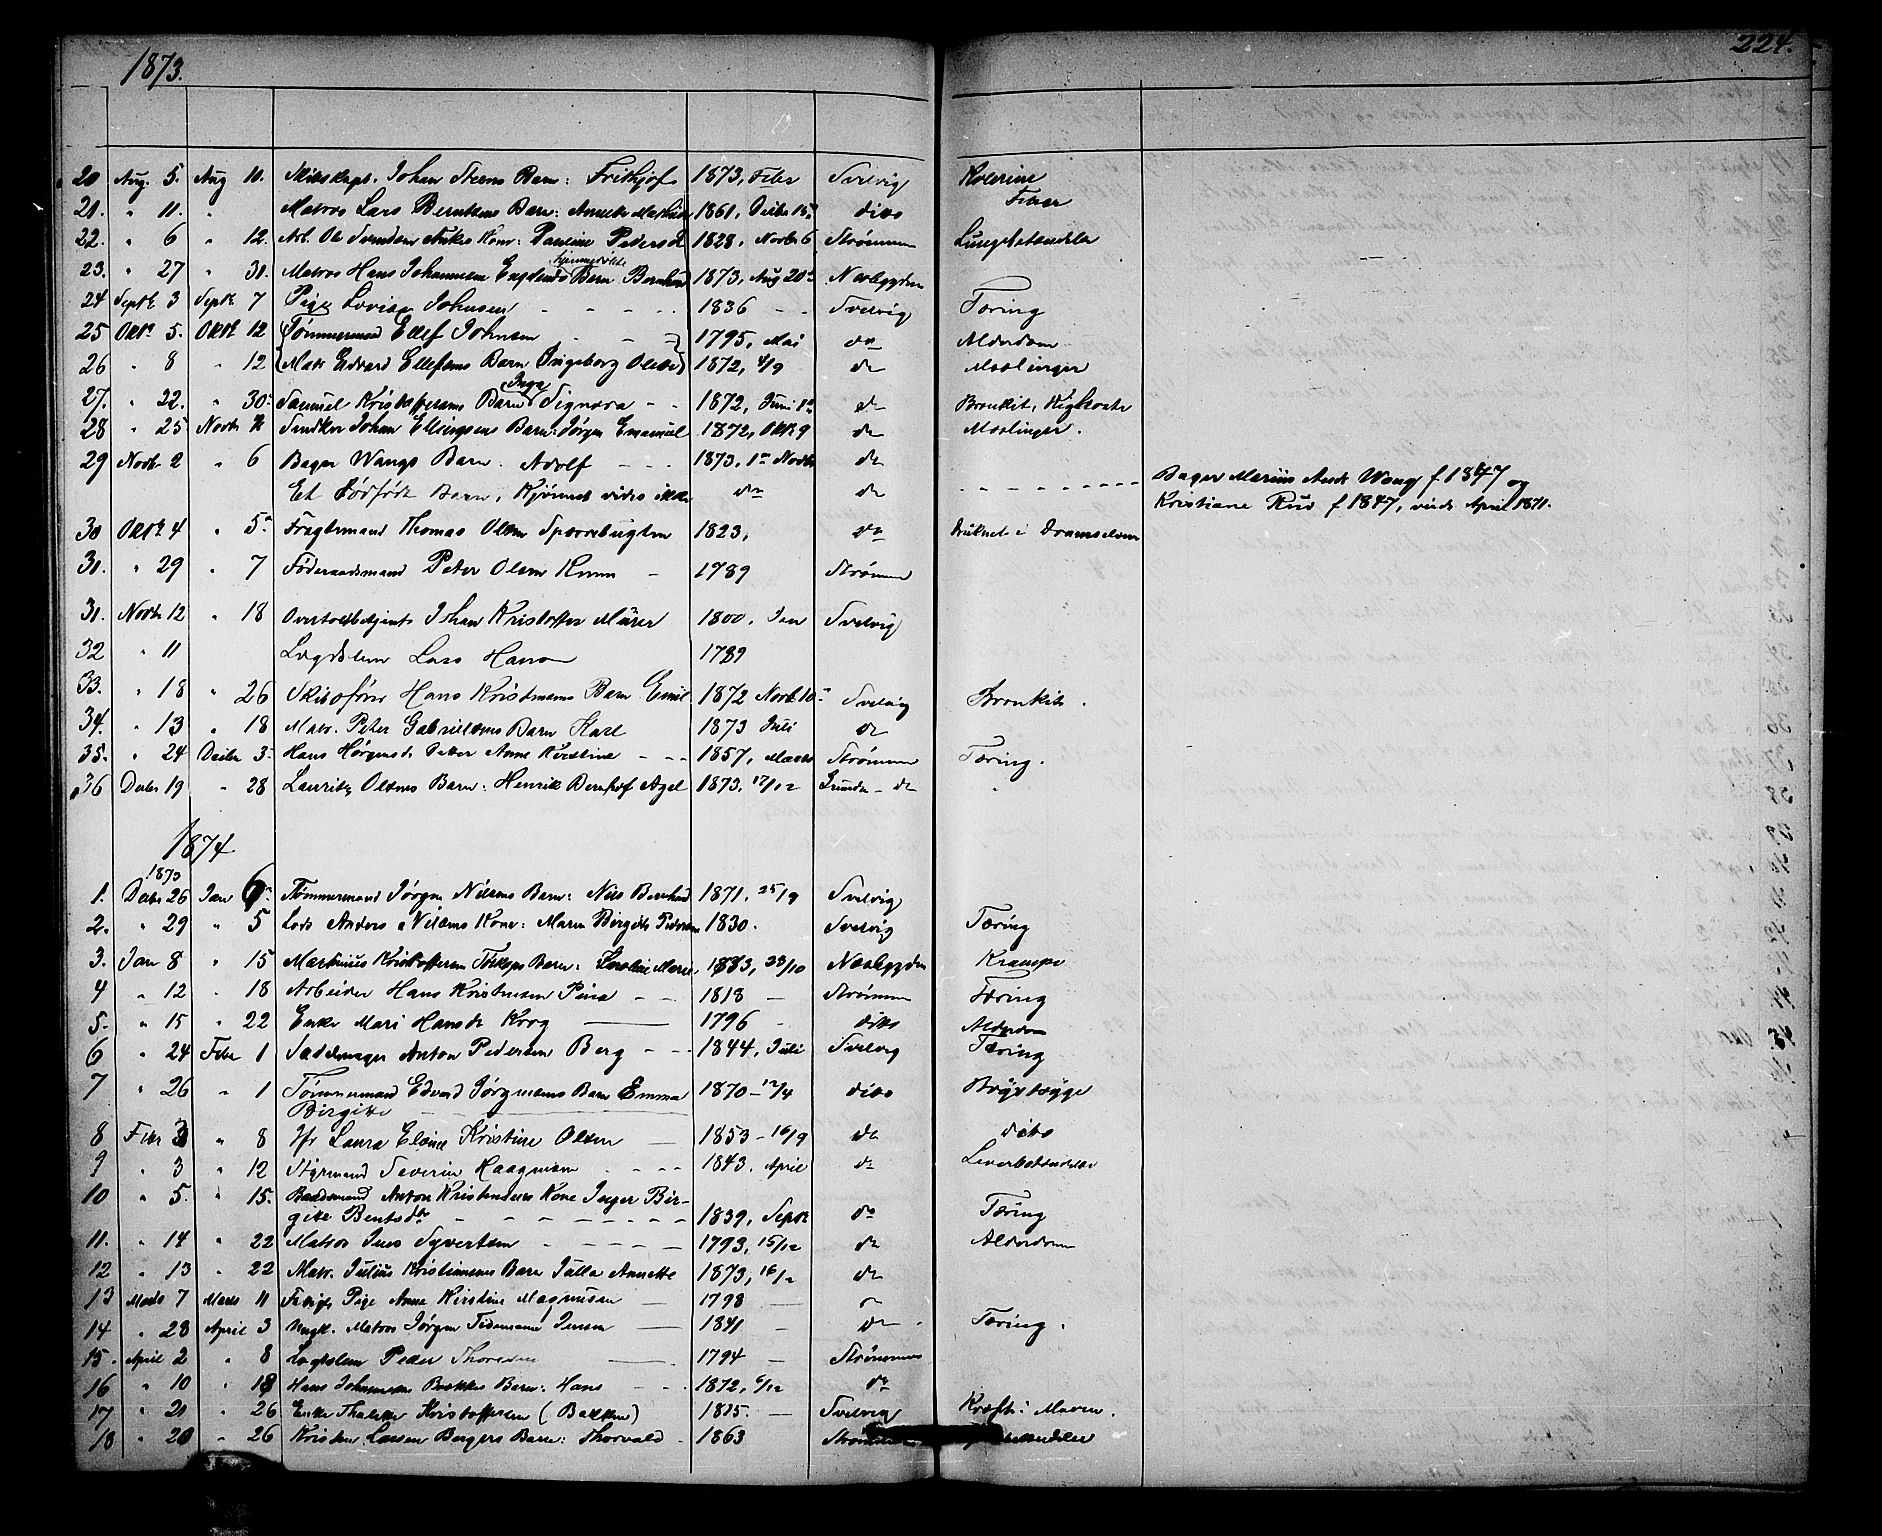 1873.
224.
20 Aug. 5. Aug 10. Skibskapt. Johan Steens Barn: Frithjof 1873, Febr Svelvig Kolerine
21. " 11. " Matros Lars Berntsens Barn: Annette Mathilde 1861, Decbr 15 ditto Feber
22. " 6 " 12. Arb. Ole Svendsen Kone: Pauline Pedersd 1828, Novbr 6 Strømmen Lungebetændelse
23. " 27 " 31. Matros Hans Johannesen Englands hjemmedøbte Barn Bernhard 1873, Aug 20 Nesbygden
24 Septb 3 Septb 7 Pige Lovise Johnsen - - - - 1836 - - Svelvig Tæring
25 Oktb 5. Oktb 12 Tømmermand Ellef Johnsen - - 1795, Mai do Alderdom
26 " 8 " 12 Matr Edvard Ellefsens Barn Ingeborg Olette 1872, 4/9 do Mæslinger
27. " 22. " 30 Samuel Kristoffersens Barn Inga Signora - - 1872, Juni 1 do Bronkit, Kighoste
28 " 25 Novbr 2 Snedker Johan Ellingsens Barn: Jørgen Emanuel 1872, Oktb 9 do Mæslinger.
29 Novb 2 " 6 Bager Wangs Barn. Adolf - - - 1873, 1 Novbr do
Bager Marius Andr Wang f 1847 og
Et dødfødt Barn, Kjønnet vides ikke do do - - - - - - - - -
Kristiane Ruud f 1847, viede April 1871.
30 Oktb 4 " 5 Fragtemand Thomas Olsen Sparrebugten 1823, do Druknet i Dramselven
31. " 29 " 7 Føderaadsmand Peter Olsen - 1789 Strømmen
31. Novbr 12 " 18 Overtoldbetjent Johan Kristoffer Mürer 1800, Jan Svelvig
32 " 11 Lægdslem Lars Hansen 1789
33. " 18 " 26 Skibsfører Hans Kristensens Barn Emil 1872 Novb 10 Svelvig Bronkit.
34. " 13 " 18 Matr. Peter Gabrielsens Barn Karl 1873 Juli do
35. " 24 Decbr 3 Hans Datter Anne Kristine - - - 1857, Marts Strømmen Tæring.
36 Decbr 19 " 28 Lauritz Olsens Barn: Henrik Bernhof Axel 1873, 17/12 Grunden - do "
1874
1873
1. Decbr 26 Jan 6 Tømmermand Jørgen Nilsens Barn: Nils Bernhard 1871, 25/9 Svelvig
2. " 29 " 5 Lods Anders Nilsens Kone: Maren Birgitte Pedersen 1830. Svelvig Tæring
3. Jan 8 " 15 Martinius Kristoffersen Barn: Karoline Marie 1873, 23/10 Næsbygden Krampe
4 " 12 " 18 Arbeider Hans Kristensen - - 1818 - Strømmen Tæring
5. " 15 " 22 Enke Mari Hansdt Krog 1796 - ditto Alderdom
6 " 24 Febr 1 Sadelmager Anton Pedersen Berg - - 1844, Juli Svelvig Tæring
7 " 26 " 1 Tømmermand Edvard Jørgensens Barn Emma 1870 - 12/4 ditto Brystsyge
Birgitte - - - -
8 Febr 3 " 8 Jfr Laura Elaine Kristine Olsen - 1853 - 16/9 do ditto
9 " 3 " 12 Styrmand Severin Haagensen - - - - 1843. April do Leverbetændelse
10 " 5. " 15. Baadsmand Anton Kristensens Kone Inger Bir-
gitte Bentsdtr - - - - - - - - 1839, Septb do Tæring
11. " 14 " 22 Matros Jens Syvertsen - - - - 1793, 15/12 do Alderdom
12 " 13 " 22 Matr. Julius Kristiansens Barn Julla Annette 1873, 16/12 do
13 Marts 7 Marts 11 Pige Anne Kirstine Magnusen - 1798 - do
14 " 28 April 3 Ungk. Matros Jørgen Tidemand Jensen - 1841 - do Tæring.
15. April 2 " 8 Lægdslem Peder Thoresen - 1794 - Strømmen
16 " 10 " 18 Hans Johannesen Barn: Hans - - 1872, 6/12 do
17 " 21 " 26 Enke Kristoffersen (Bakken) 1815. - Svelvig Kræft i Maven.
18 " 20 " 26 Kristen Larsen Bergers Barn: Thorvald - 1863 Strømmen